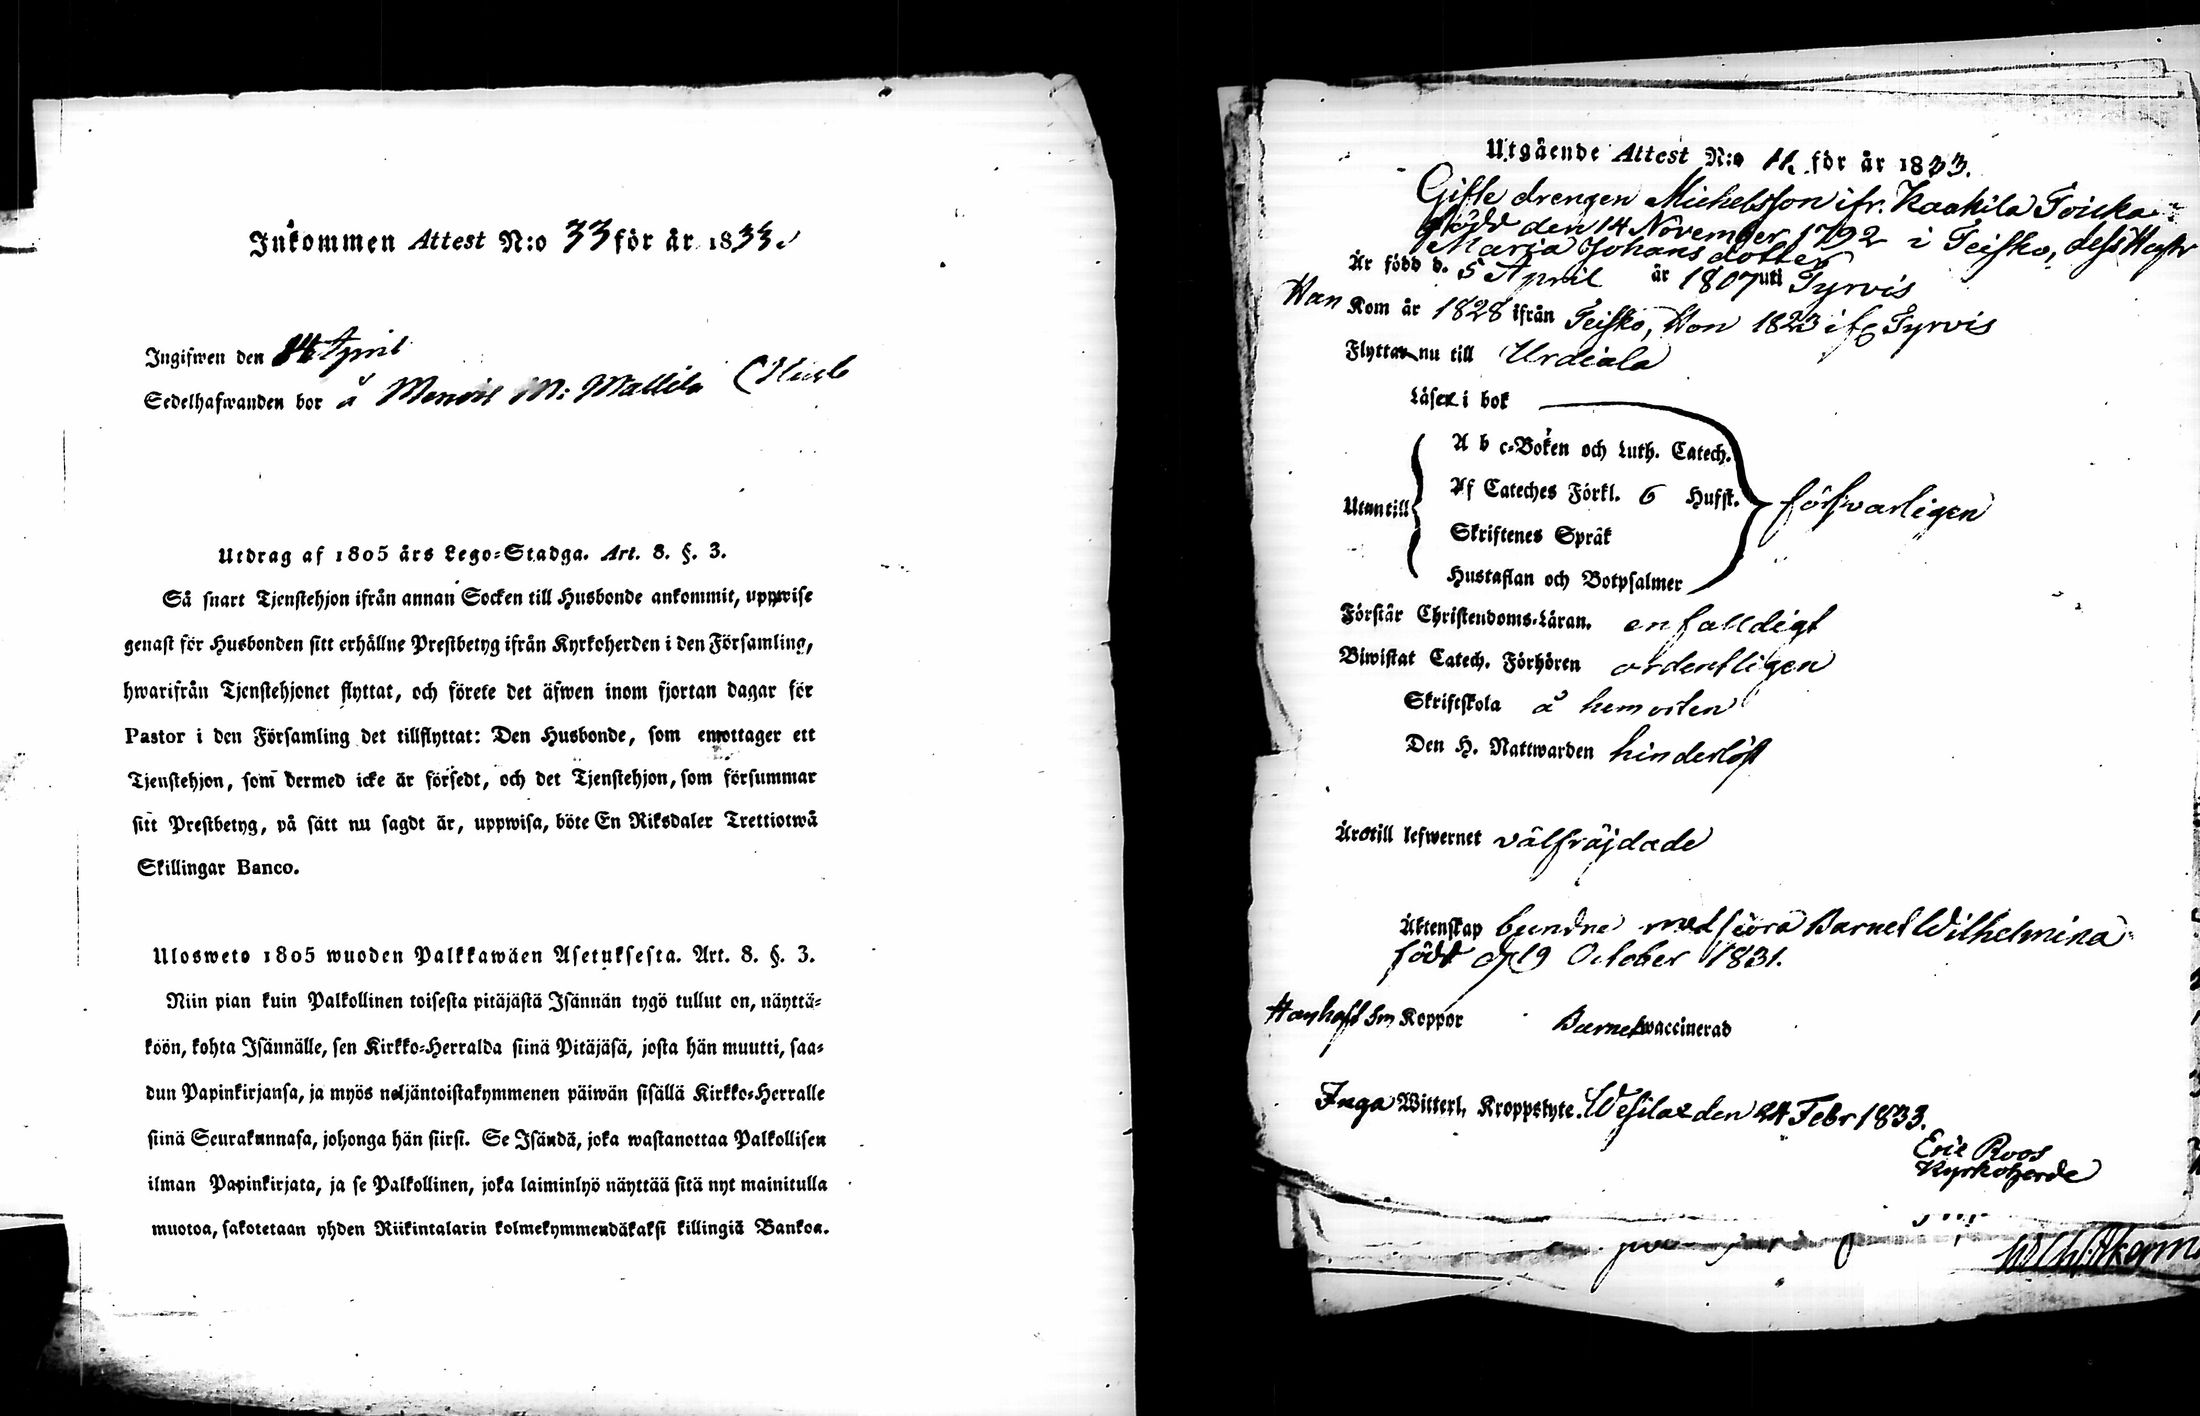 Inkommen Attest N:o 33 för år 1833.
Ingifwen den 14 April
Sedelhafwanden bor å
Utdrag af 1805 års Lego-Stadga. Art. 8. §. 3.
Så snart Tjenstehjon ifrån annan Socken till Husbonde ankommit, uppwise
genast för Husbonden sitt erhållne Prestbetyg ifrån Kyrkoherden i den Församling,
hwarifrån Tjenstehjonet flyttat, och förete det äfwen inom fjortan dagar för
Pastor i den Församling det tillflyttat: Den Husbonde, som emottager ett
Tjenstehjon, som dermed icke är försedt, och det Tjenstehjon, som försummar
sitt Prestbetyg, på sätt nu sagdt är, uppwisa, böte En Riksdaler Trettiotwå
Skillingar Banco.
Ulosweto 1805 wuoden Palkkawäen Asetuksesta. Art. 8. §. 3.
Niin pian kuin Palkollinen toisesta pitäjästä Isännän tygö tullut on, näyttä-
köön, kohta Isännälle, sen Kirkko-Herralda siinä Pitäjäsä, josta hän muutti, saa-
dun Papinkirjansa, ja myös neljäntoistakymmenen päiwän sisällä Kirkko-Herralle
siinä Seurakunnasa, johonga hän siirsi. Se Isändä, joka wastanottaa Palkollisen
ilman Papinkirjata, ja se Palkollinen, joka laiminlyö näyttää sitä nyt mainitulla
muotoa, sakotetaan yhden Riikintalarin kolmekymmendäkaksi killingiä Bankoa.
Utgående Attest N:o 11. för år 1833.
Gifte drengen Michelsson ifr. Kaakila Toicka
född den 14 November 1792 i Teisko, dess Hustr
Maria Johansdotter
Är född d. 5 April år 1807 uti Tyrvis
Han Kom år 1828 ifrån Teisko, Hon 1823 ifr Tyrvis
Flytta nu till Urdiala
Läser i bok
A b c-Boken och Luth. Catech.
Utantill Af Cateches Förkl. 6 Hufst. försvarligen
Skriftenes Språk
Hustaflan och Botpsalmer
Förstår Christendoms-Läran. enfalldigt
Biwistat Catech. Förhören ordentligen
Skriftskola å hemorten
Den H. Nattwarden hinderlöst
Äro till lefwernet välfräjdade
Äktenskap bundne med förra Barnet Wilhelmina
född d 19 October 1831.
Han haft Sm Koppor Barnet waccinerad
Inga Witterl. Kroppslyte. Wesilax den 24 Febr 1833.
Eric Roos
Kyrkoherde